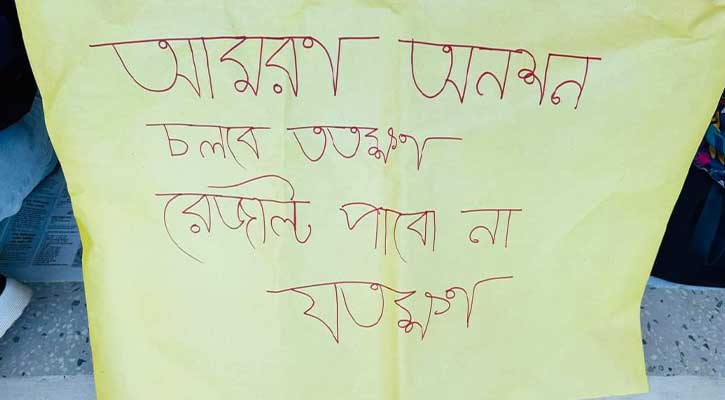 আমরণ অনশন
চলবে ততক্ষণ
রেজাল্ট পাবো না
যতক্ষণ